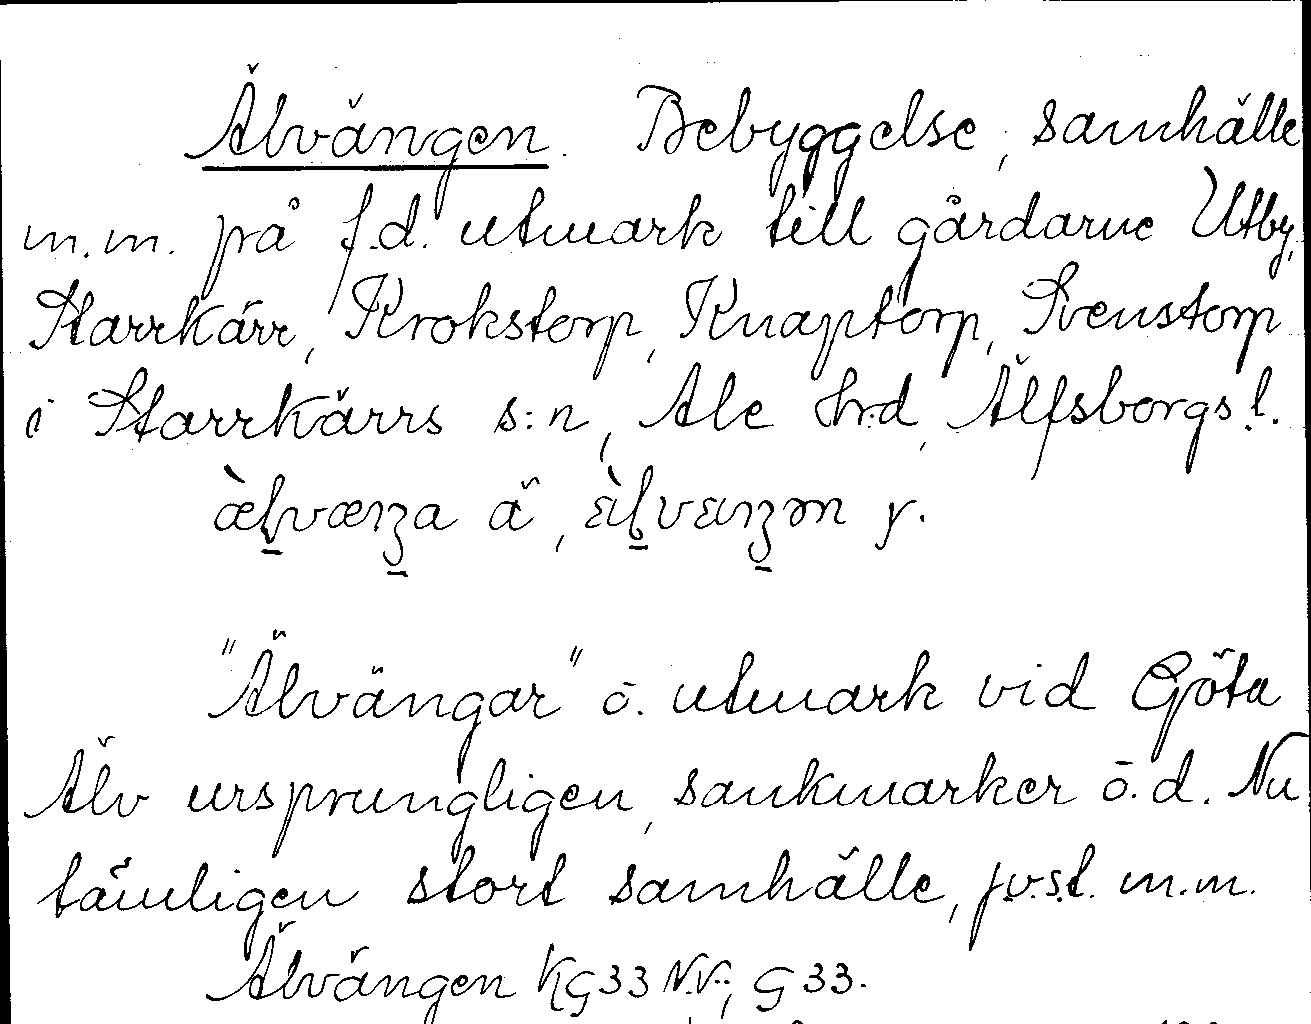 Älvängen. Bebyggelse, samhälle
m.m. på f.d. utmark till gårdarne Utby,
Starrkärr, Krokstorp, Knaptorp, Svenstorp
i Starrkärrs s:n, Ale hrd, Älfsborgs l.
"Älvängar" o. utmark vid Göta
Älv ursprungligen, sankmarker o.d. Nu
tämligen stort samhälle, jv.st. m.m.
Älvängen KG33 N.V., G33.